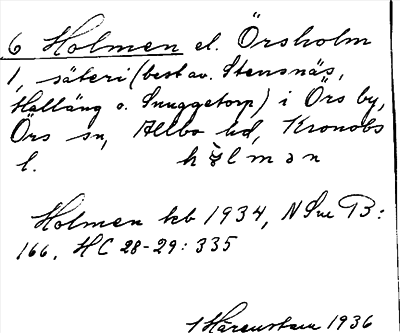 6 Holmen el. Örsholm
1, säteri (best av. Stensnäs,
Halläng o. Snuggetorp) i Örs by,
Örs sn, Allbo hd, Kronobs
l. hòlmən
Holmen kb 1934, N Sve B:
166. HC 28-29: 335
1936